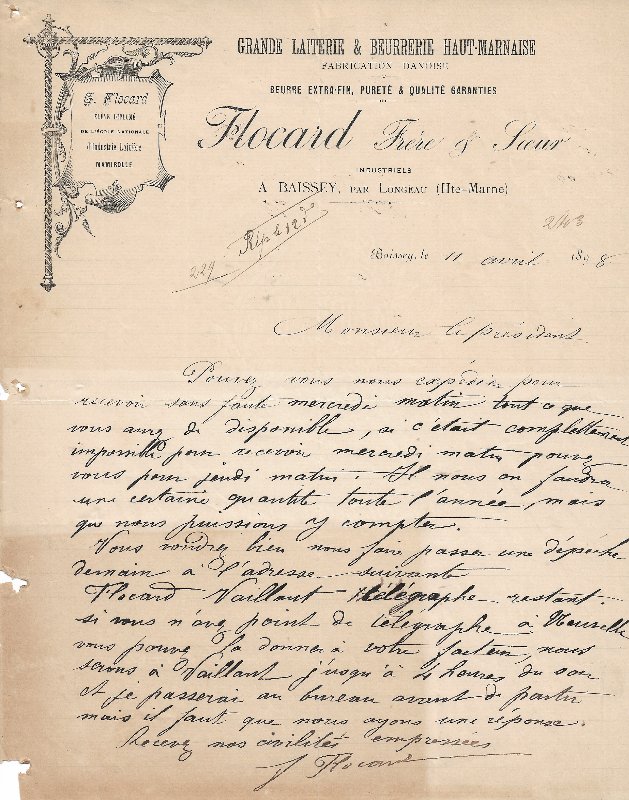 GRANDE LAITERIE & BEURRERIE HAUT-MARNAISE
FABRICATION DANOISE
BEURRE EXTRA-FIN, PURETÉ & QUALITÉ GARANTIES
G. Flocard
ÉLÈVE DIPLOMÉ
DE L'ÉCOLE NATIONALE
d'Industrie Laitière
MAMIROLLE
Flocard Frère & Sœur
INDUSTRIELS
A BAISSEY, PAR LONGEAU (Hte-Marne)
Rép le 12 do
229
2143
Boissey, le 11 avril 1898
Monsieur le président
Pouvez vous nous expédier pour
recevoir sans faute mercredi matin tout ce que
vous aurez de disponible, si c'était complettement
impossible pour recevoir mercredi matin pouvez
vous pour jeudi matin. Il nous en faudra
une certaine quantité toute l'année, mais
que nous puissions y compter.
Vous voudrez bien nous faire passer une dépêche
demain à l'adresse suivante
Flocard Vaillant télégraphe restant.
si vous n'avez point de télégraphe à Neuvelle
vous pouvez la donner à votre facteur, nous
serons à Vaillant jusqu'à 4 heures du soir
et je passerai au bureau avant de partir
mais il faut que nous ayons une réponse.
Recevez nos civilités empressées
J Flocard